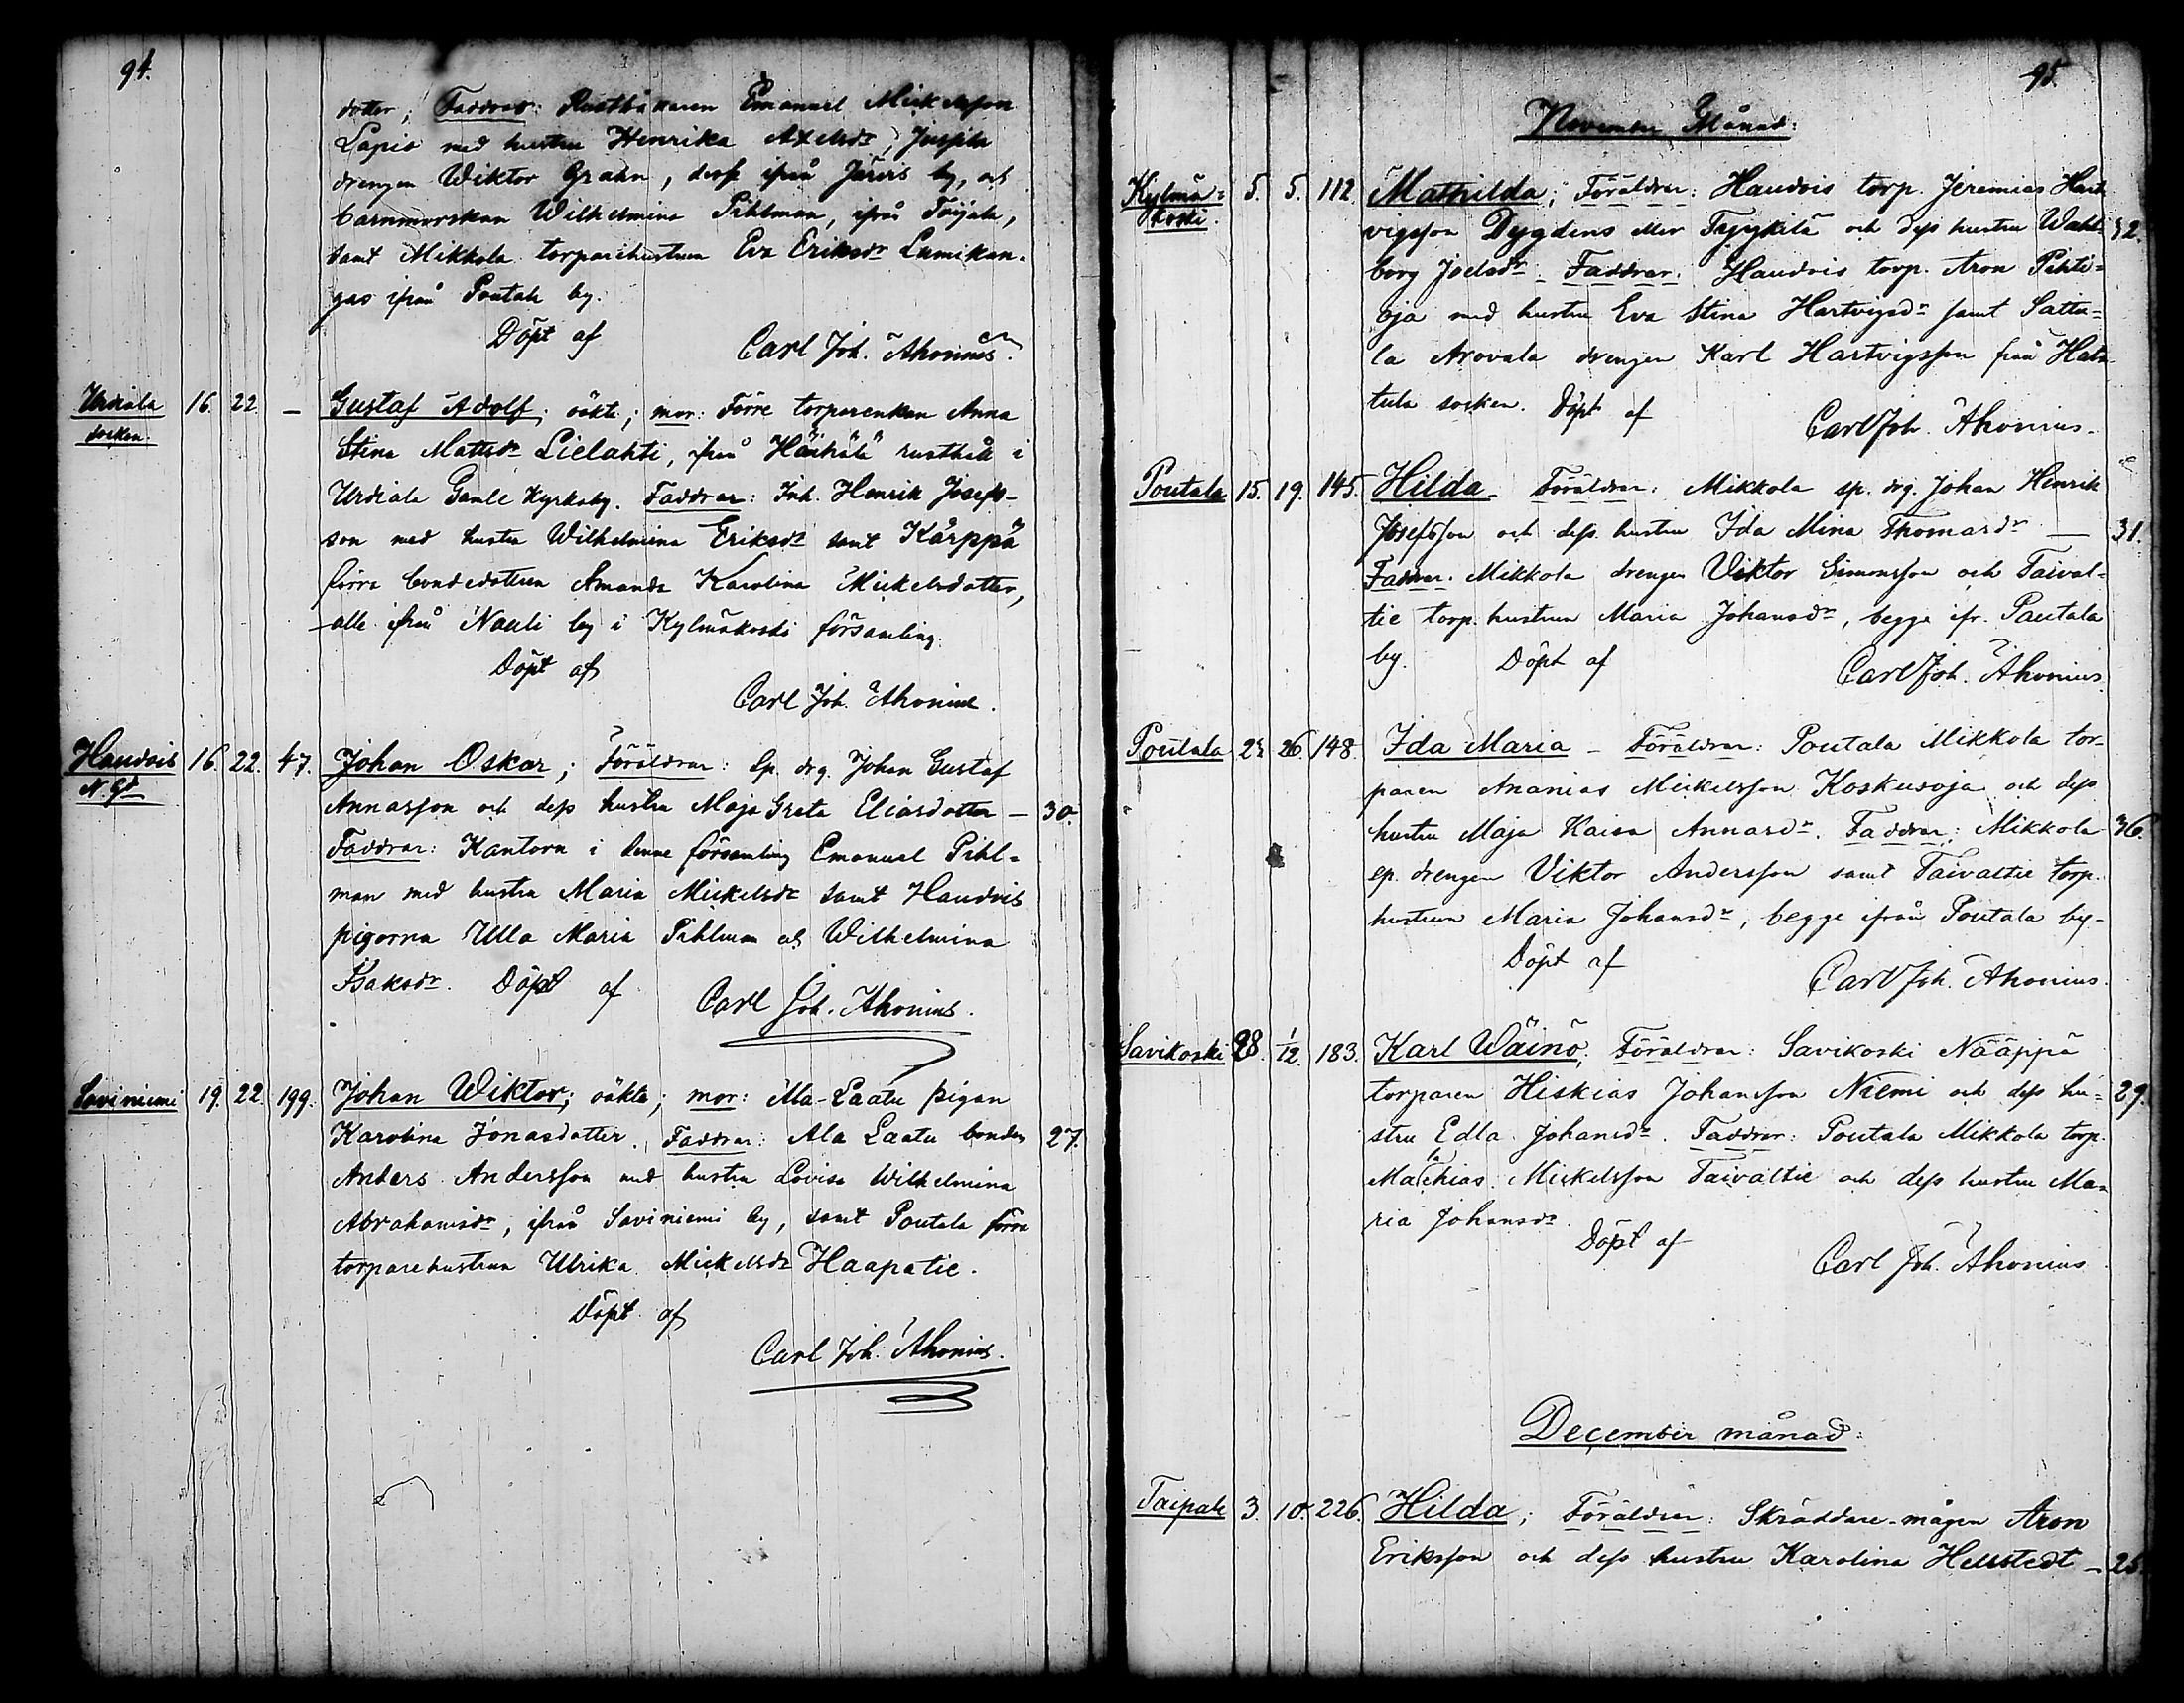 94.
dotter; Faddrar: Rusthållaren Emanuel Mickelsson
Lapio med hustru Henrika Axelsdr,
drengen Wiktor Grahn, ifrån Järvis by, och
barnmorskan Wilhelmina Pihlman, ifrån Toijala,
samt Mikkola torparehustrun Eva Eriksdr Lumikan-
gas ifrån Poutala by.
Döpt af
Carl Joh. Ahonius.
Urdiala 16. 22. — Gustaf Adolf; oäkta; mor: Förre torparenkan Anna
socken.
Stina Mattsdr Lielahti, ifrån rusthåll i
Urdiala Gamle Kyrkoby. Faddrar: Inh. Henrik Josefs-
son med hustru Wilhelmina Eriksdr samt Kärppä
förra bondedottren Amanda Karolina Mickelsdotter,
alle ifrån Nauli by i Kylmäkoski församling.
Döpt af
Carl Joh. Ahonius.
Haudois 16. 22. 47. Johan Oskar; Föräldrar: Sp. drg. Johan Gustaf
N. Gd
Annasson och dess hustru Maja Greta Eliasdotter — 30.
Faddrar: Kantorn i denne församling Emanuel Pihl-
man med hustru Maria Mickelsdr samt Haudois
pigorna Ulla Maria Pihlman och Wilhelmina
Isaksdr. Döpt af
Carl Joh. Ahonius.
Saviniemi 19. 22. 199. Johan Wiktor; oäkta; mor: Ala-Laatu pigan
Karolina Jonasdotter. Faddrar: Ala Laatu bonden 27.
Anders Andersson med hustru Lovisa Wilhelmina
Abrahamsdr, ifrån Saviniemi by, samt Poutala förra
torparehustrun Ulrika Mickelsdr Haapatie.
Döpt af
Carl Joh. Ahonius.
95.
November Månad:
Kylmä- 5. 5. 112. Mathilda; Föräldrar: Haudois torp. Jeremias Hart-
koski.
vigsson Dygdens eller och dess hustru Wahl- 32.
borg Joelsdr. Faddrar: Haudois torp. Aron Pihti-
oja med hustru Eva Stina Hartvigsdr samt Sattu-
la Arovala drengen Karl Hartvigsson från Hat-
tula socken. Döpt af
Carl Joh. Ahonius.
Poutala 15. 19. 145. Hilda. Föräldrar: Mikkola sp. drg. Johan Henrik
Josefsson och dess hustru Ida Mina Thomasdr — 31.
Faddrar: Mikkola drengen Viktor Simonsson och Taival-
tie torp. hustrun Maria Johansdr, begge ifr. Poutala
by. Döpt af
Carl Joh. Ahonius.
Poutala 26. 148. Ida Maria — Föräldrar: Poutala Mikkola tor-
paren Ananias Mickelsson Koskusoja och dess
hustru Maja Kaisa Annasdr. Faddrar: Mikkola 36.
sp. drengen Viktor Andersson samt Taivaltie torp.
hustrun Maria Johansdr, begge ifrån Poutala by.
Döpt af
Carl Joh. Ahonius.
Savikoski 28. 1/12. 183. Karl Wäinö. Föräldrar: Savikoski Nääppä
torparen Hiskias Johansson Niemi och dess hu- 29.
stru Edla Johansdr. Faddrar: Poutala Mikkola torp.
Mathias Mickelsson Taivaltie och dess hustru Ma-
ria Johansdr.
Döpt af
Carl Joh. Ahonius
December månad:
Taipale 3. 10. 226. Hilda; Föräldrar: Skräddare-mågen Aron
Eriksson och dess hustru Karolina Hellstedt — 25.